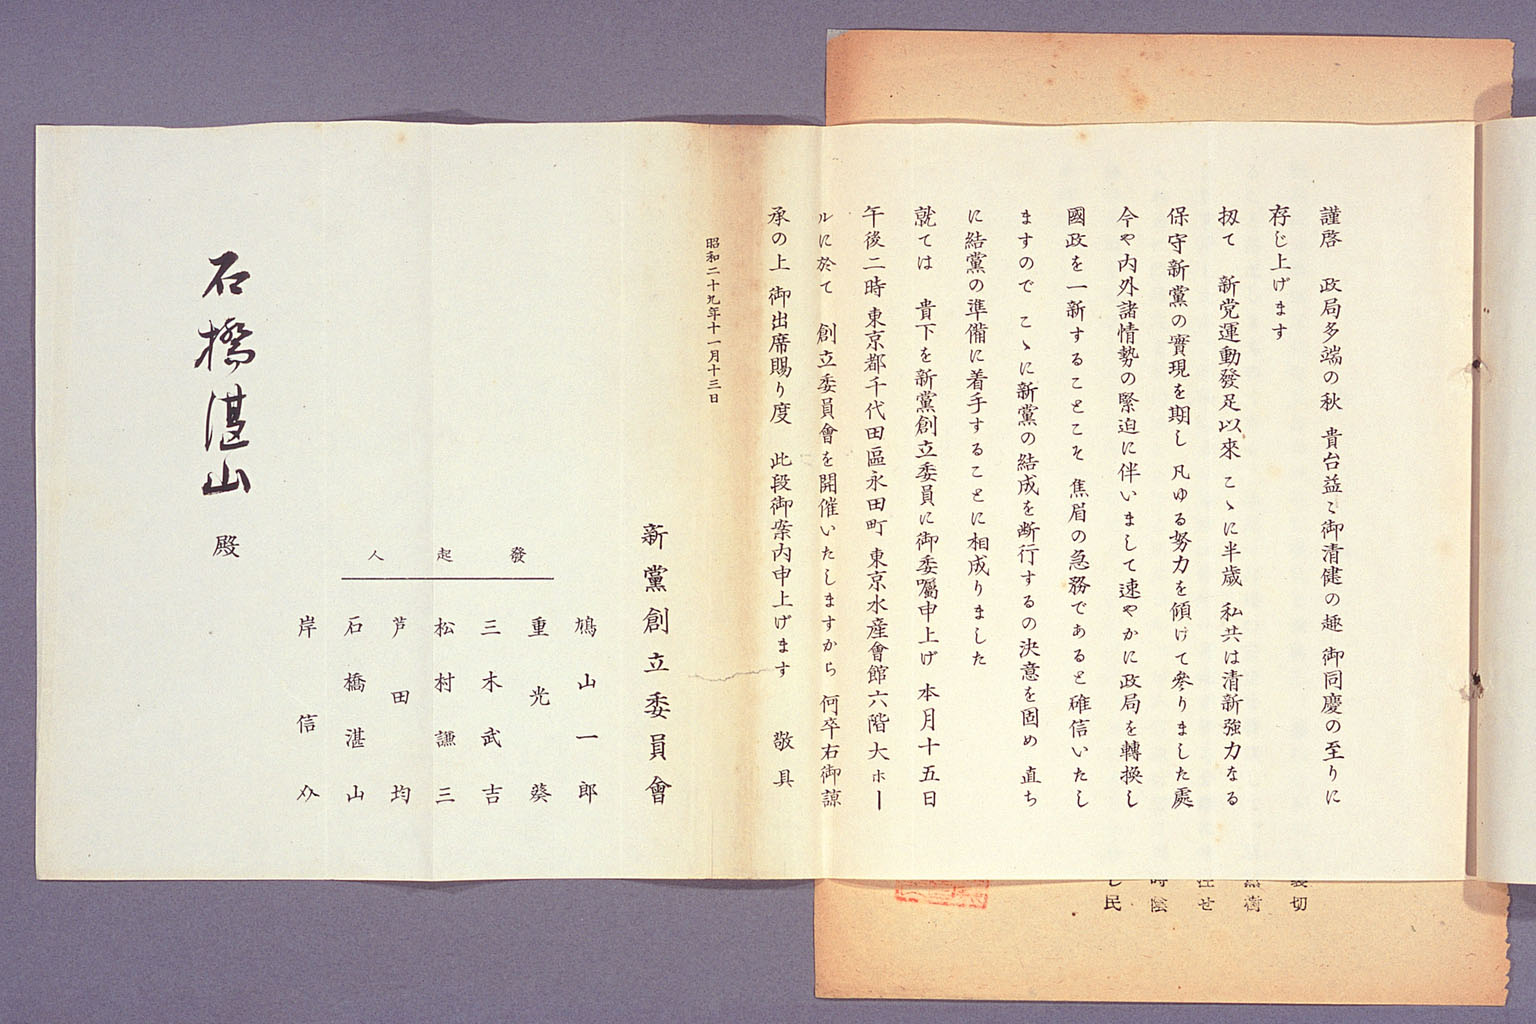 謹啓　政局多端の秋　貴台益〻御清健の趣　御同慶の至りに
存じ上げます
扨て　新党運動發足以來　こゝに半歳　私共は清新強力なる
保守新黨の實現を期し　凡ゆる努力を傾けて參りました處
今や内外諸情勢の緊迫に伴いまして速やかに政局を轉換し
國政を一新することこそ　焦眉の急務であると確信いたし
ますので　こゝに新黨の結成を断行するの決意を固め　直ち
に結黨の準備に着手することに相成りました
就ては　貴下を新黨創立委員に御委嘱申上げ　本月十五日
午後二時　東京都千代田區永田町　東京水産會館六階大ホー
ルに於て　創立委員會を開催いたしますから　何卒右御諒
承の上　御出席賜り度　此段御案内申上げます　　敬具
昭和二十九年十一月十三日
新黨創立委員會
發起人
鳩山一郎
重光葵
三木武吉
松村謙三
芦田均
石橋湛山
岸信介
石橋湛山殿
切
せ
時陰
し民